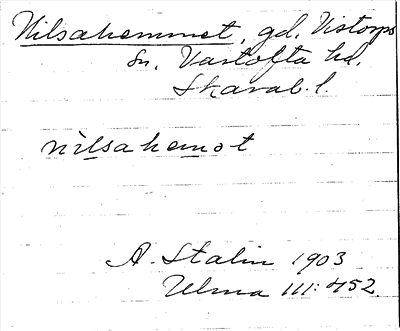 Nilsahemmet, gd, Vistorps
sn, Vartofta hd,
Skarab. l.
nìlsahemot
A. Stalin 1903
Ulma 111:452.